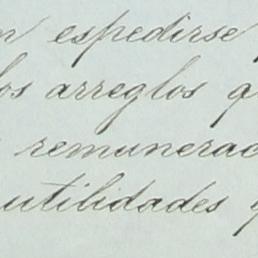 n espedirse
los arreglos q
remunerac
utilidades q